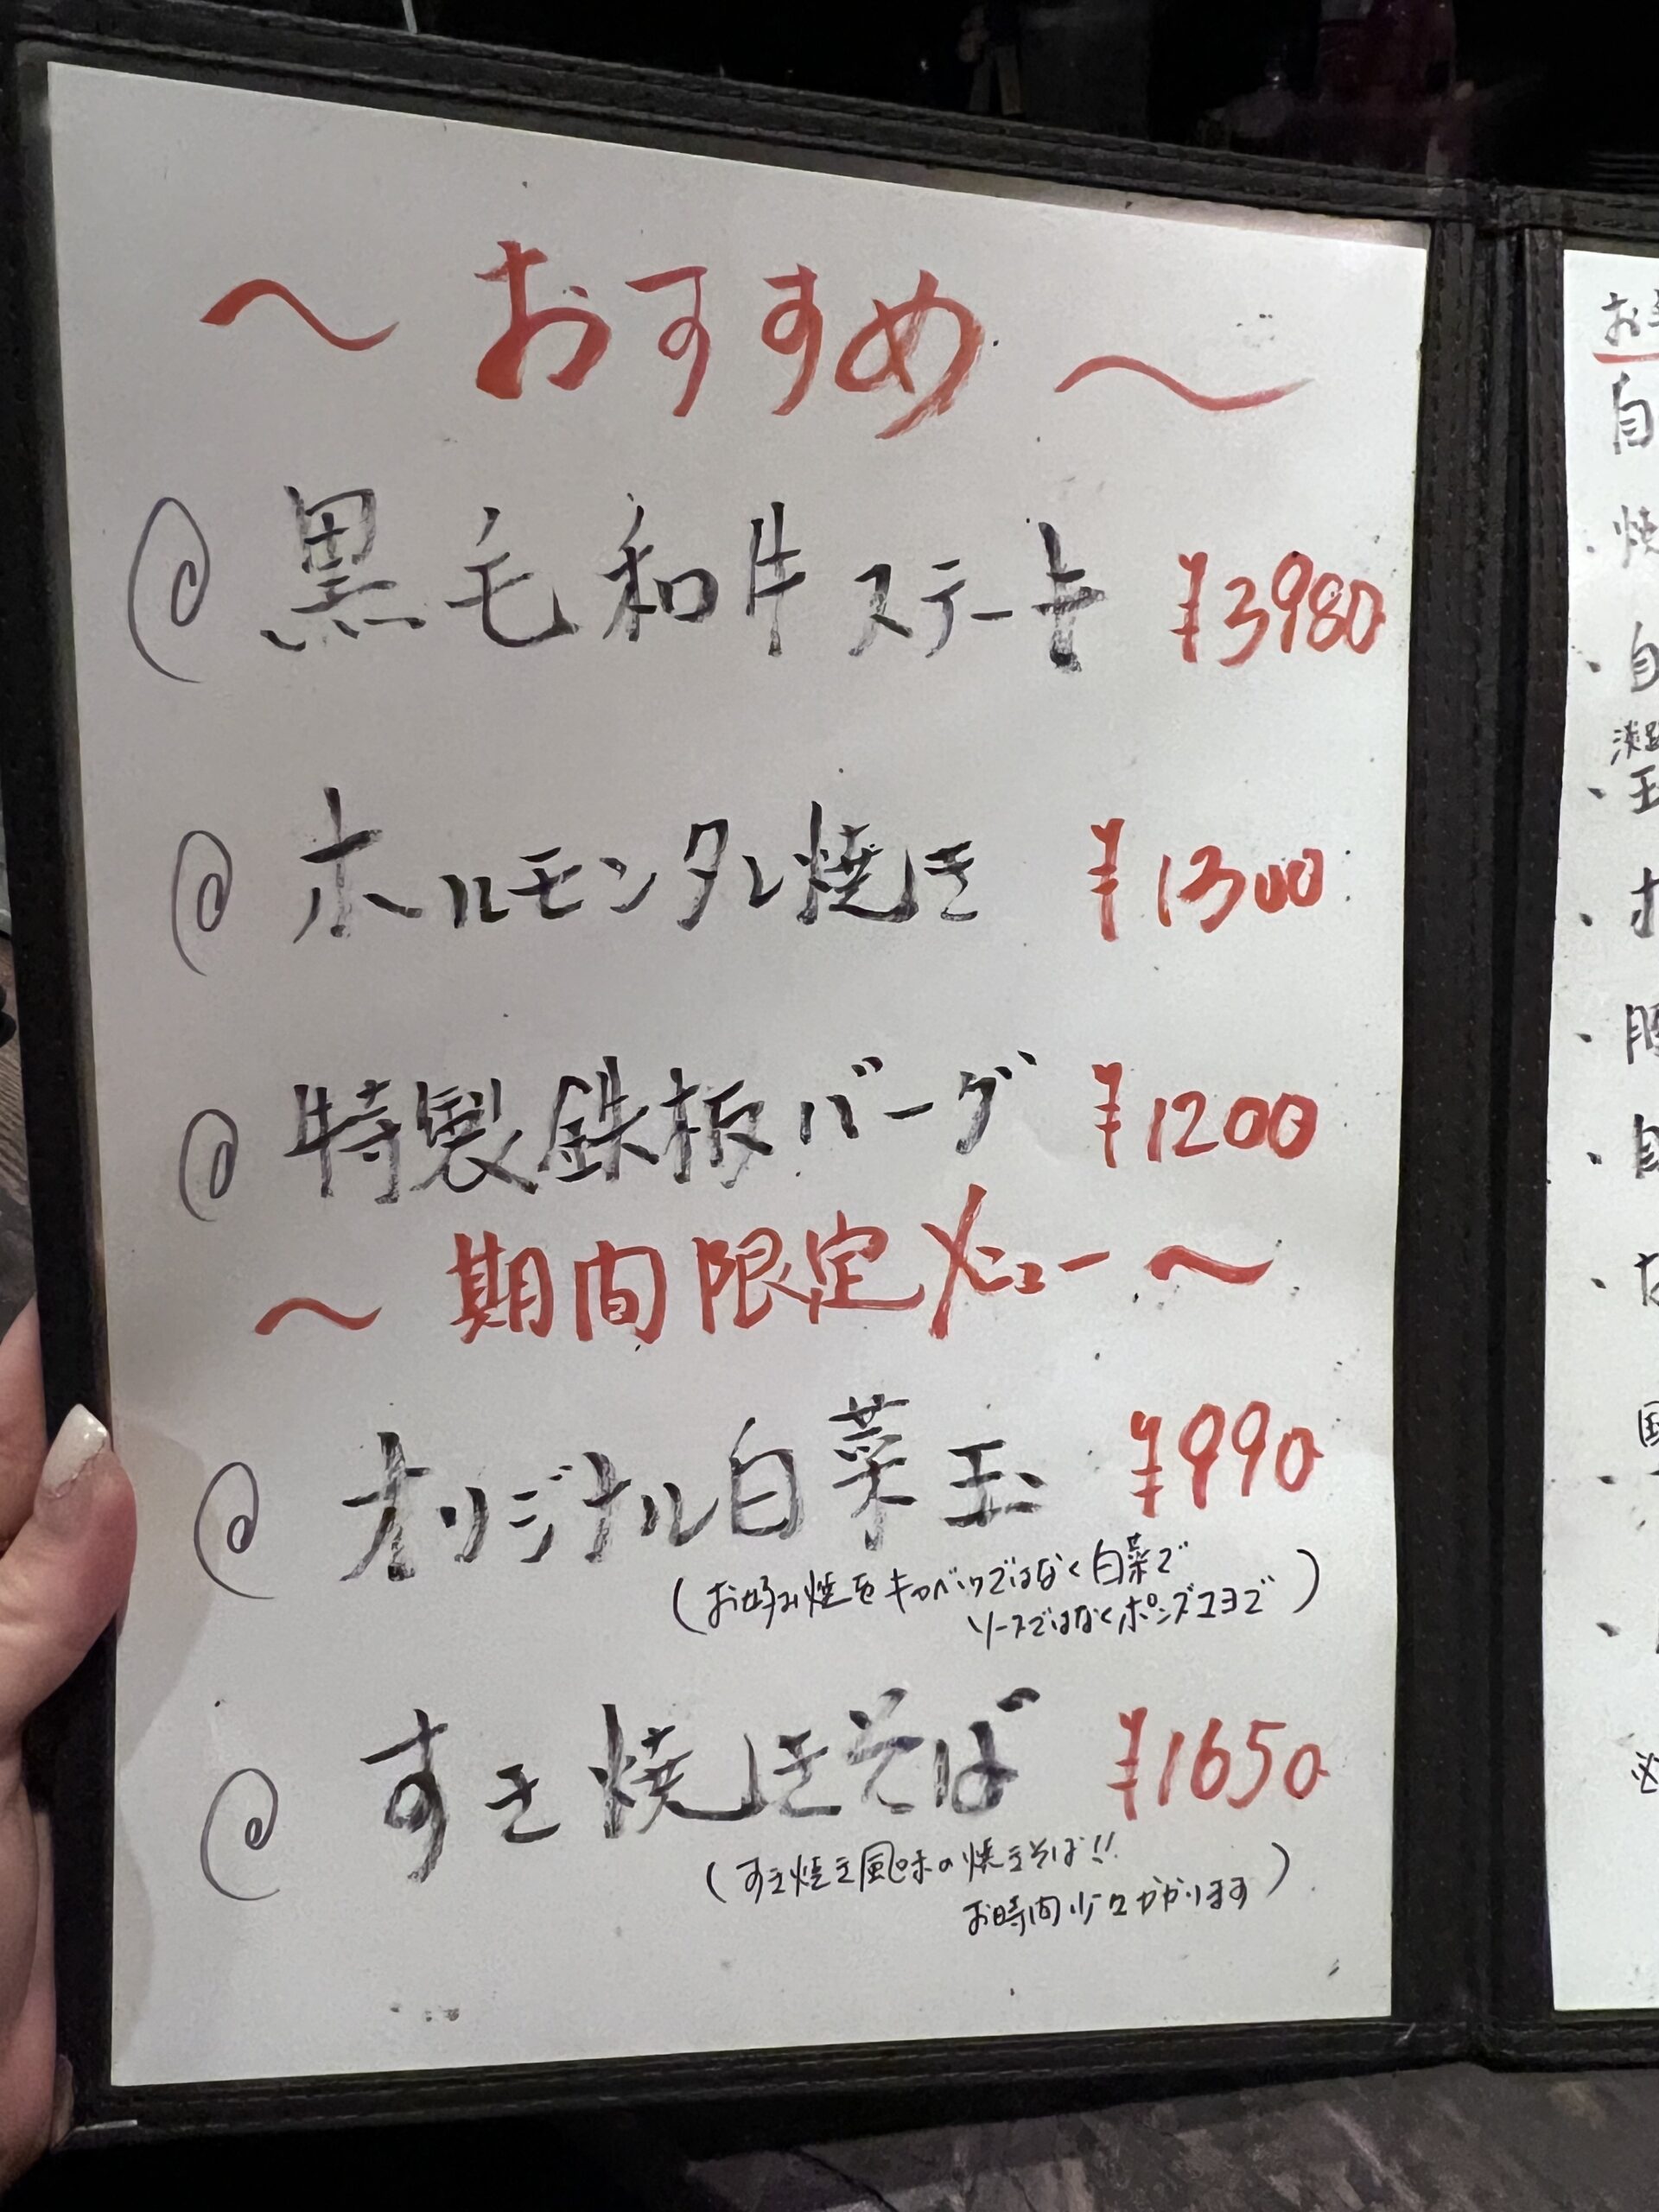 ～おすすめ～
@ 黒毛和牛ステーキ ¥3980
@ ホルモンタレ焼き ¥1300
@ 特製鉄板バーグ ¥1200
～期間限定メニュー～
@ オリジナル白菜玉 ¥990
(お好み焼をキャベツではなく白菜で
ソースではなくポンズマヨで)
@ すき焼きそば ¥1650
(すき焼き風味の焼きそば!!
お時間少々かかります)
自
焼
・自